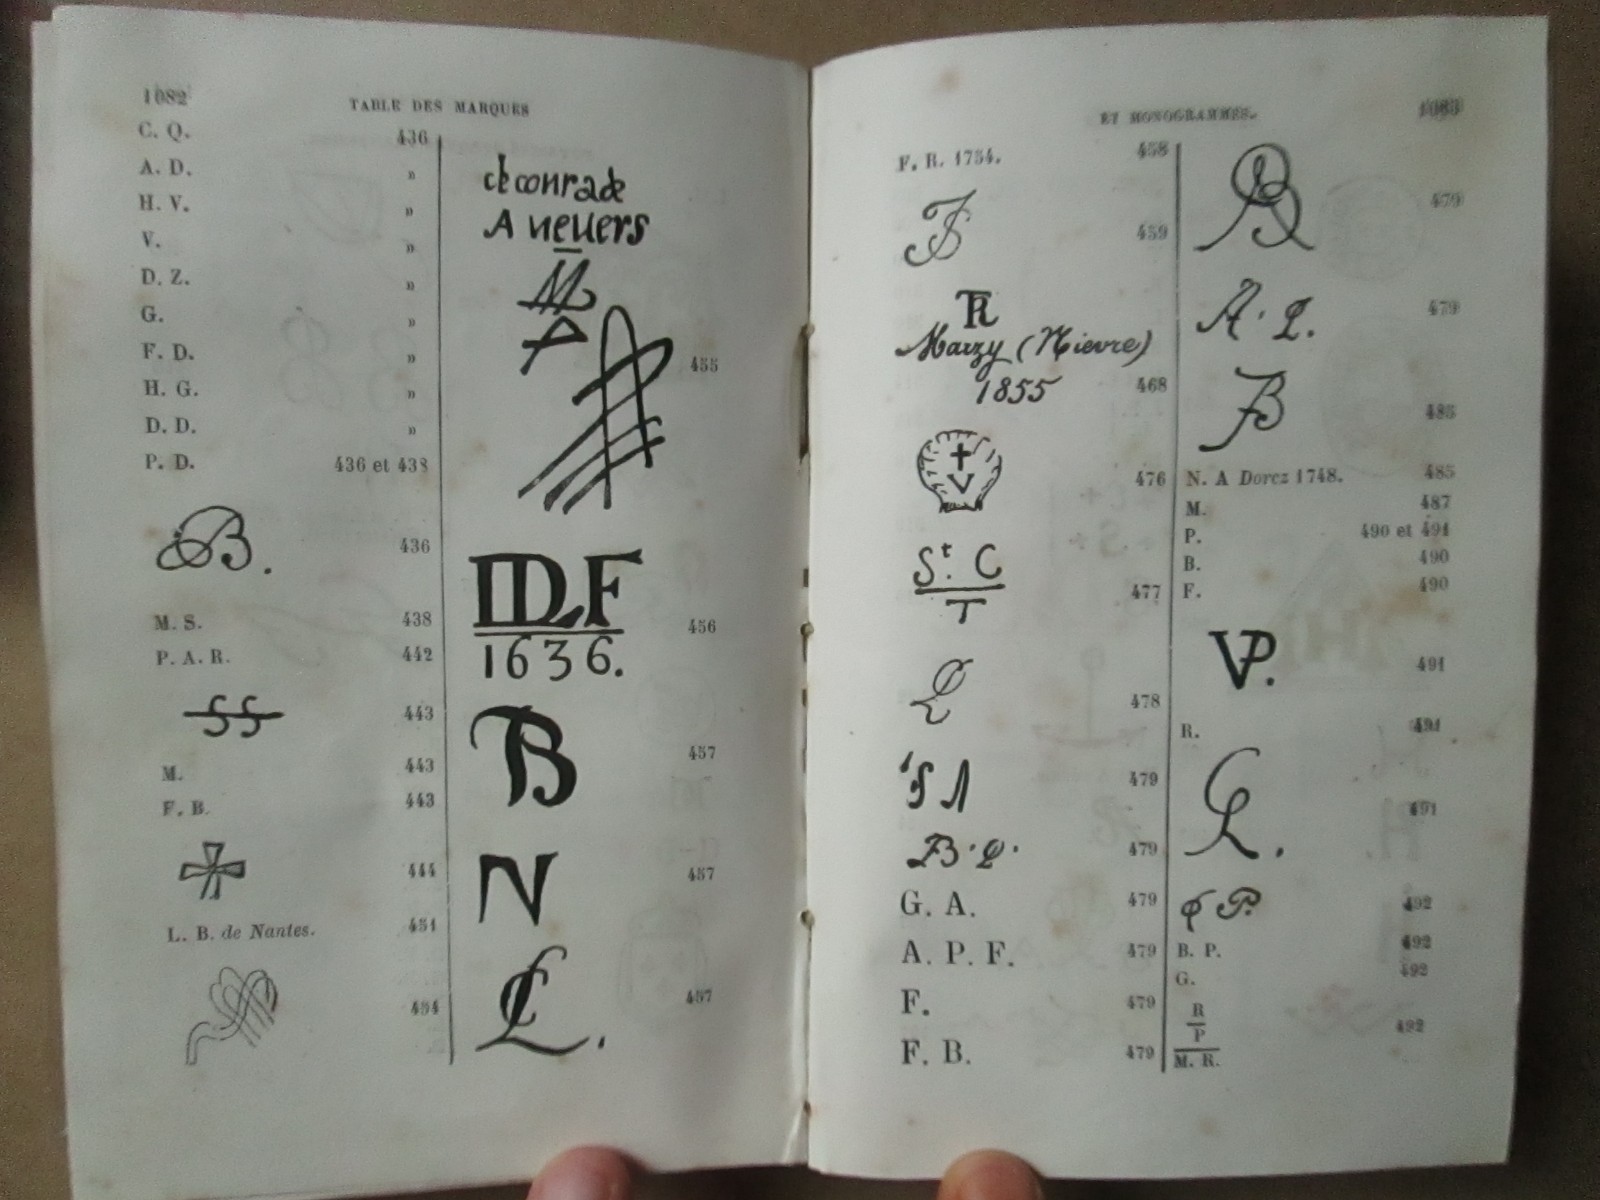 1082 TABLE DES MARQUES
C. Q. 436
A. D. »
H. V. »
V. »
D. Z. »
G. »
F. D. »
H. G. »
D. D. »
P. D. 436 et 438
B. 436
M. S. 438
P. A. R. 442
SS 443
M. 443
F. B. 443
444
L. B. de Nantes. 451
454
de conrade
A neuers
455
DLF
1636. 456
B 457
N 457
457
ET MONOGRAMMES. 1083
F. R. 1754. 458
459
TR
Marzy (Nievre)
1855 468
V 476
St. C
T 477
478
479
B. L. 479
G. A. 479
A. P. F. 479
F. 479
F. B. 479
479
A. L. 479
485
N. A Dorez 1748. 485
M. 487
P. 490 et 491
B. 490
F. 490
VP. 491
R. 491
491
492
B. P. 492
G. 492
R
P
M. R. 492